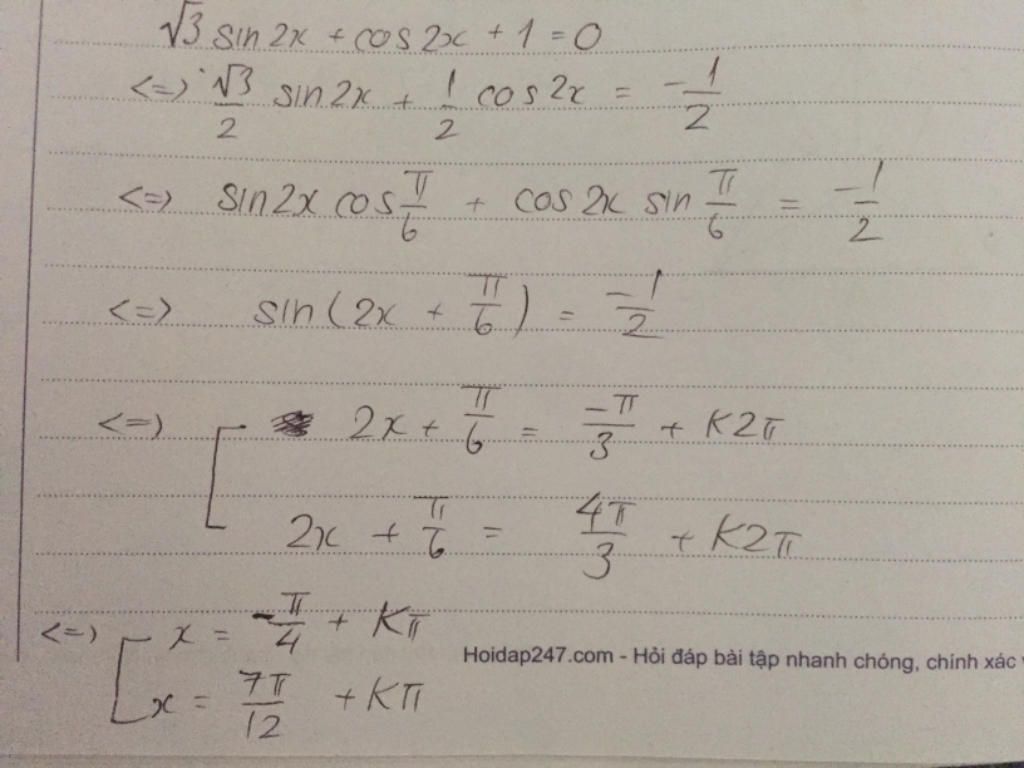 √3 sin2x + cos2x + 1 = 0
<=> √3/2 sin2x + 1/2 cos2x = -1/2
<=> sin2x cos π/6 + cos2x sin π/6 = -1/2
<=> sin(2x + π/6) = -1/2
<=> [ 2x + π/6 = -π/3 + K2π
2x + π/6 = 4π/3 + K2π
<=> [ x = -π/4 + Kπ
x = 7π/12 + Kπ
Hoidap247.com - Hỏi đáp bài tập nhanh chóng, chính xác